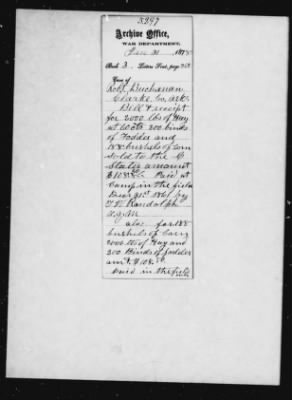 5297
Archive Office,
WAR DEPARTMENT,
Dec 31, 1875
Book 3, Letters Sent, page
Case of
Robt Buchanan
Clarke Co, Ark.
Bill & receipt
for 2000 lbs of Hay
at 60 cts 200 binds
of Fodder and
188 bushels of corn
sold to the C
States amount
$108 Paid at
Camp in the field
Dec 31st 1861 by
Randolph
a.q.m.
also for 188
bushels of Corn
2000 lbs of Hay and
200 Binds of fodder
amt $108
Paid in the field